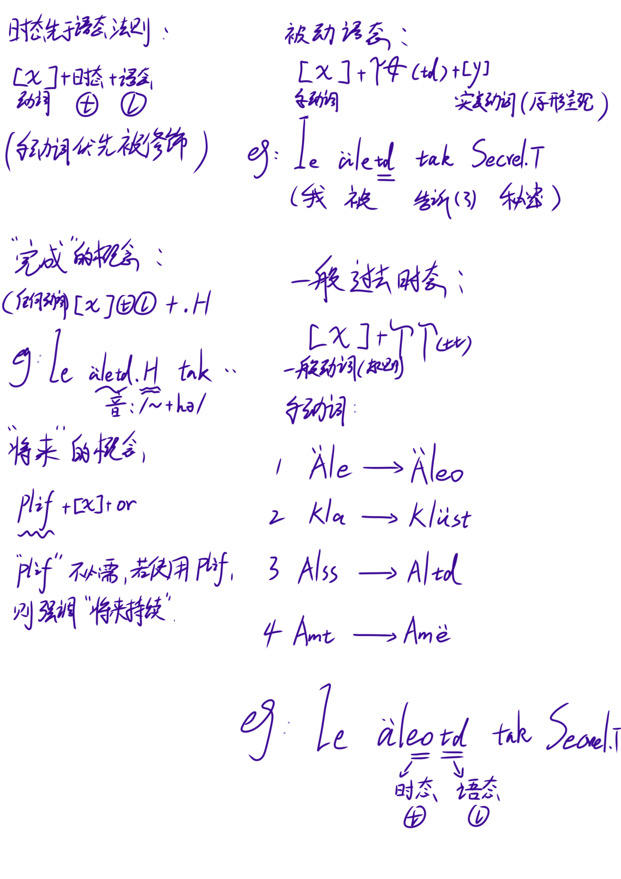 时态先于语态法则：
[x]+时态+语态
动词 ⊕ ⓥ
(命动词优先被修饰)
被动语态：
[x]+ (td)+[y]
动词 实义动词(原形呈现)
eg: Ie äletd tak Secrel.T
(我 被 告诉(了) 秘密)
"完成"的概念：
(任何动词 [x] +.H
eg: Ie äletd.H tak ..
音:/~+hə/
"将来"的概念,
plif+[x]+or
"plif"不必需,若使用plif,
则强调"将来持续".
一般过去时态：
[x]+ (tt)
一般动词(规则)
动词:
1 Äle → Äleo
2 Kla → Klüst
3 Alss → Altd
4 Amt → Amë
eg: Ie äleotd tak Secrel.T
时态 语态